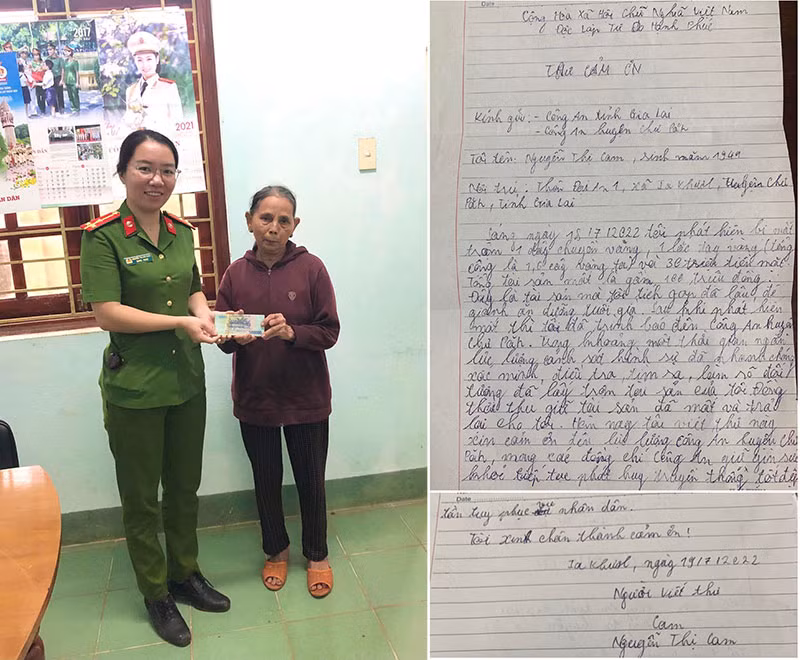 2017
2021
AN DÂN
Date
Cộng Hòa Xã Hội Chủ Nghĩa Việt Nam
Độc Lập Tự Do Hạnh Phúc
THƯ CẢM ƠN
Kính gửi: - Công An tỉnh Gia Lai
- Công An huyện Chư Păh
Tôi tên: Nguyễn Thị Cam, sinh năm 1949
Nơi trú: Thôn Đại An 1, xã Ia Khươl, Huyện Chư
Păh, Tỉnh Gia Lai
ngày 15/7/2022 tôi phát hiện bị mất
trộm 1 dây chuyền vàng, 1 lắc tay vàng (tổng
cộng là vàng ta) với 30 triệu tiền mặt
Tổng tài sản mất là gần 100 triệu đồng.
Đây là tài sản mà tôi tích góp đã lâu để
giành an dưỡng tuổi già. Sau khi phát hiện
mất thì tôi đã trình báo đến Công An huyện
Chư Păh. Trong khoảng một thời gian ngắn
lực lượng cảnh sát hình sự đã nhanh chóng
xác minh điều tra, tìm ra, làm rõ đối
tượng đã lấy trộm tài sản của tôi. Đồng
thời thu giữ tài sản đã mất và trả
lại cho tôi. Hôm nay tôi viết thư này
xin cảm ơn đến lực lượng công An huyện Chư
Păh, mong các đồng chí Công An giữ gìn sức
khỏe tiếp tục phát huy truyền thống tốt đẹp
Date
tận tụy phục nhân dân.
Tôi xin chân thành cảm ơn!
Ia Khươl, ngày 19/7/2022
Người viết thư
Cam
Nguyễn Thị Cam